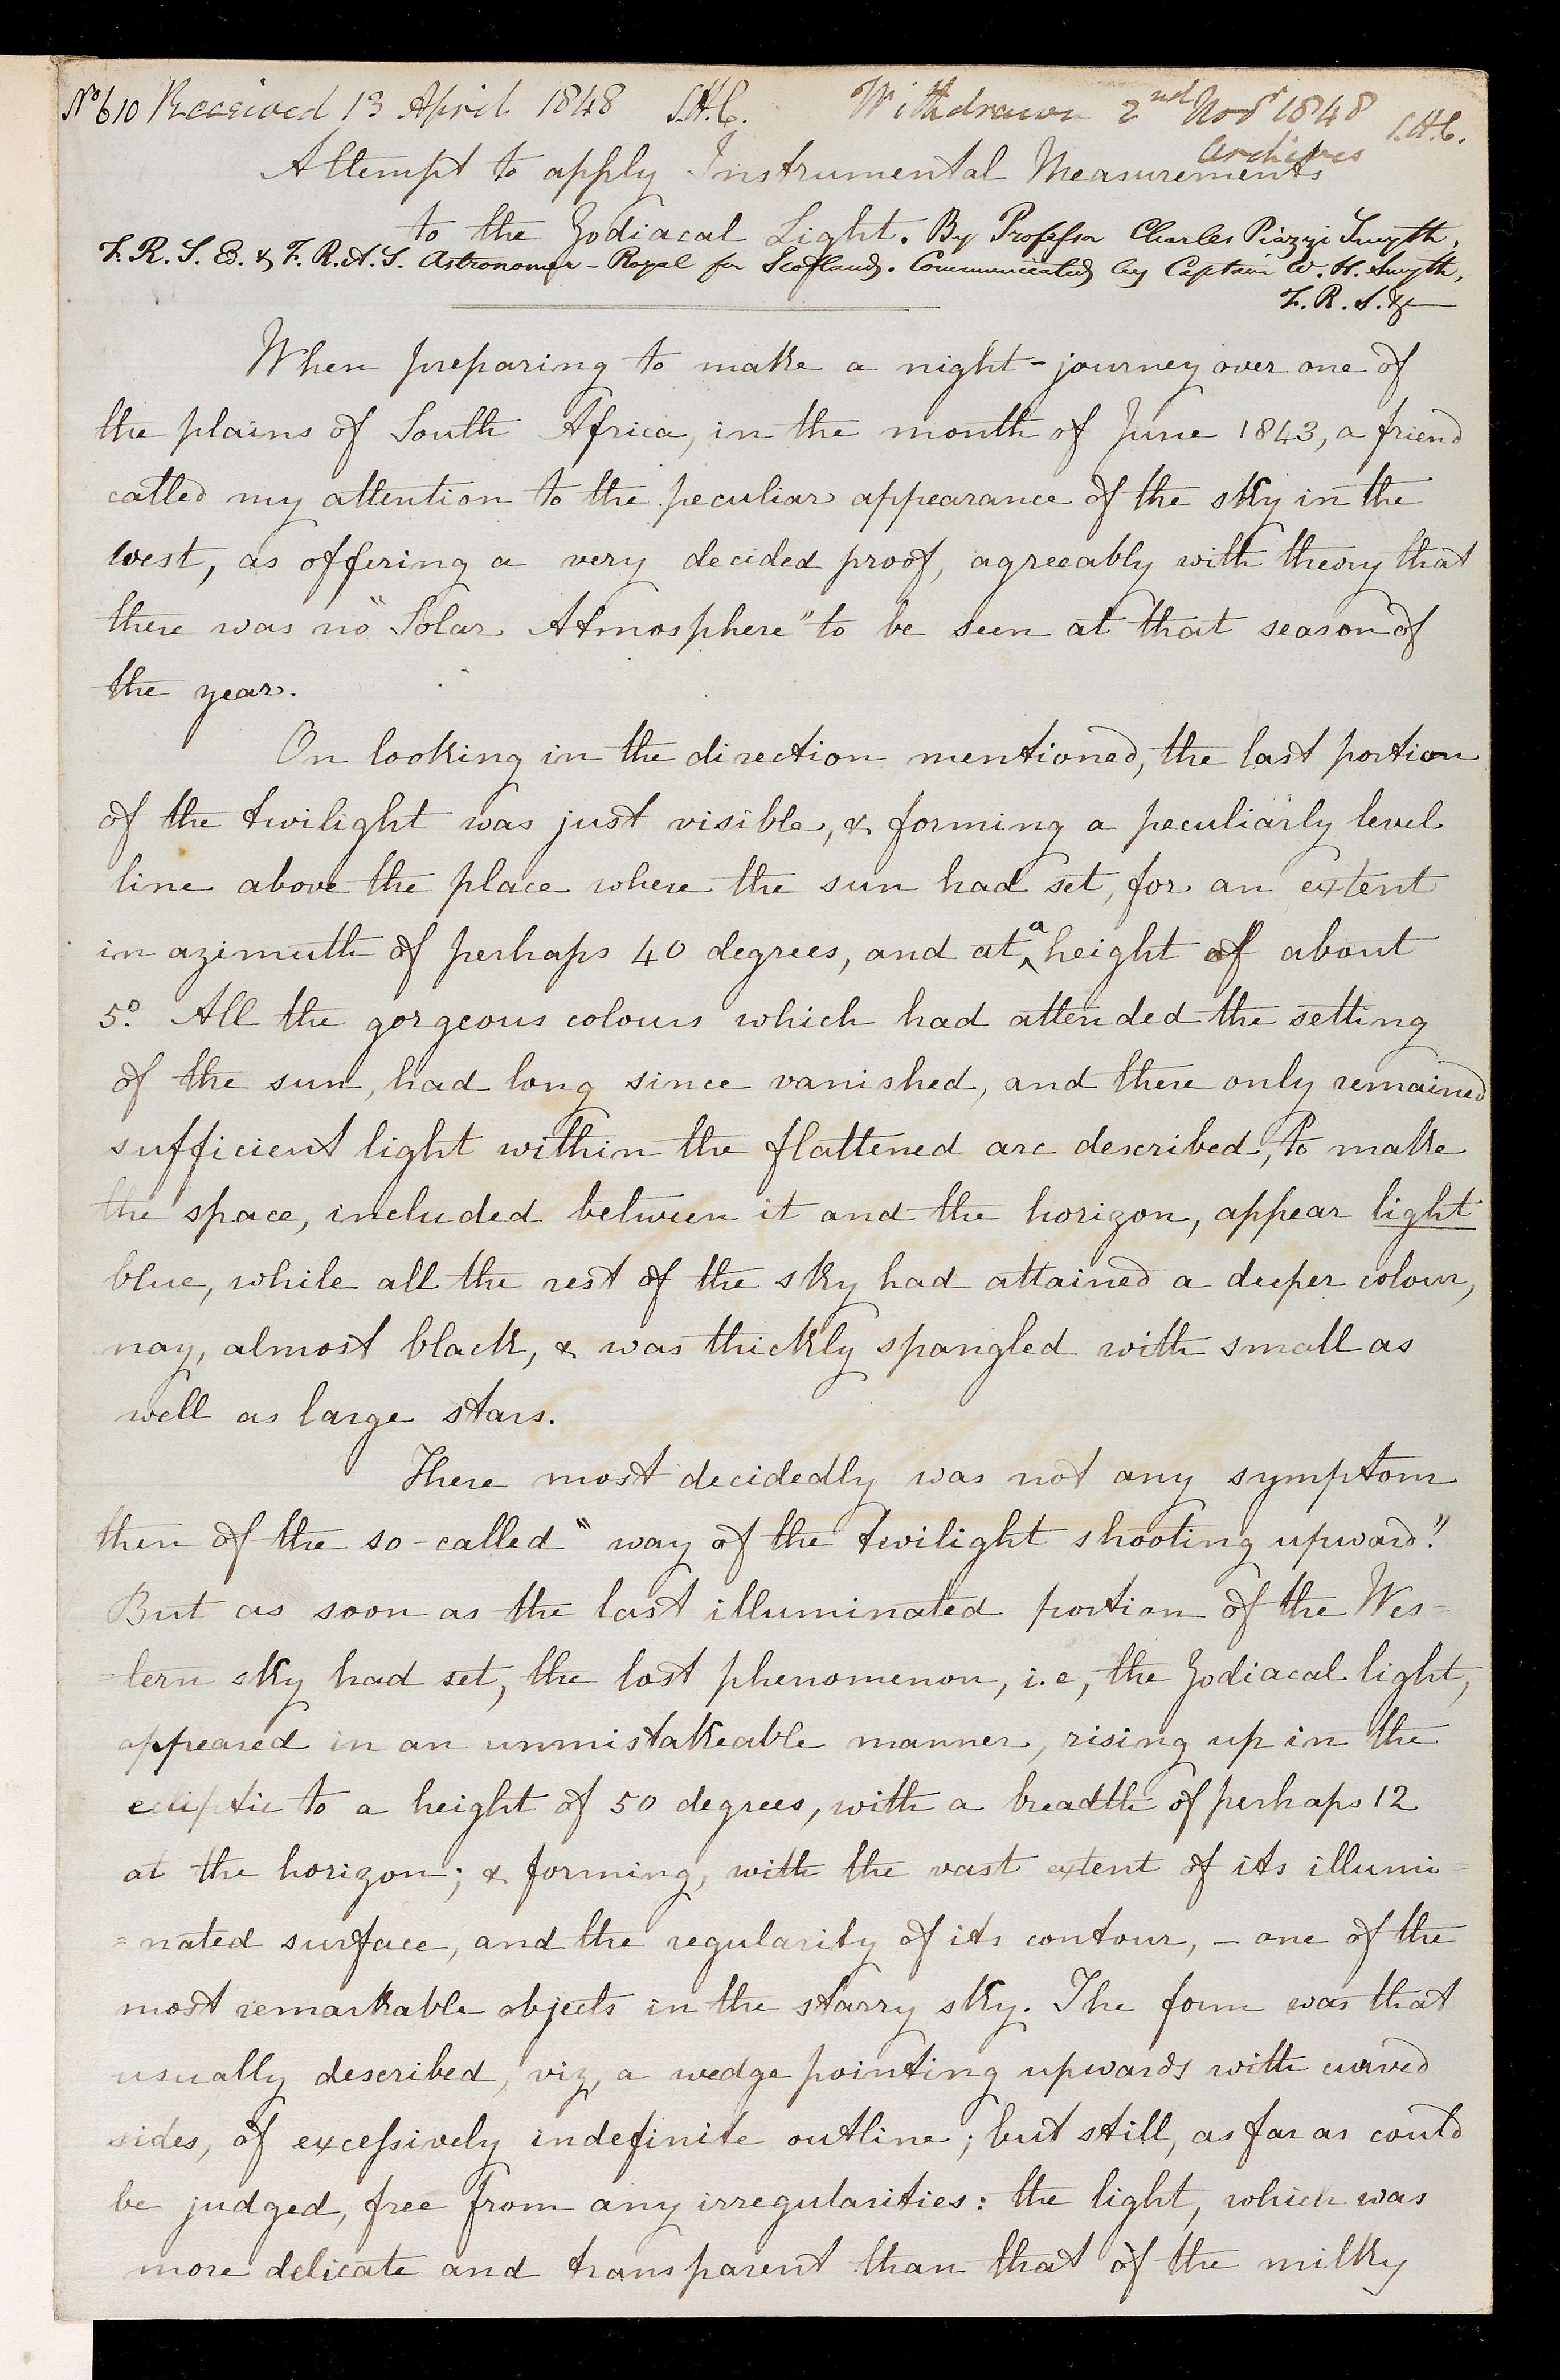 No 610 Received 13 April 1848 S.H.C. Withdrawn 2nd Novr 1848 S.H.C.
Archives
Attempt to apply Instrumental Measurements
to the Zodiacal Light. By Professor Charles Piazzi Smyth,
F.R.S.Ed. & F.R.A.S. Astronomer-Royal for Scotland. Communicated by Captain W. H. Smyth,
F.R.S. &c
When preparing to make a night-journey over one of
the plains of South Africa, in the month of June 1843, a friend
called my attention to the peculiar appearance of the sky in the
west, as offering a very decided proof, agreeably with theory that
there was no "Solar Atmosphere" to be seen at that season of
the year.
On looking in the direction mentioned, the last portion
of the twilight was just visible, & forming a peculiarly level
line above the place where the sun had set, for an extent
in azimuth of perhaps 40 degrees, and at a height of about
5°. All the gorgeous colours which had attended the setting
of the sun, had long since vanished, and there only remained
sufficient light within the flattened arc described, to make
the space, included between it and the horizon, appear light
blue, while all the rest of the sky had attained a deeper colour,
nay, almost black, & was thickly spangled with small as
well as large stars.
There most decidedly was not any symptom
then of the so-called "way of the twilight shooting upward."
But as soon as the last illuminated portion of the Wes-
=tern sky had set, the last phenomenon, i.e, the Zodiacal light,
appeared in an unmistakeable manner, rising up in the
ecliptic to a height of 50 degrees, with a breadth of perhaps 12
at the horizon; & forming, with the vast extent of its illumi=
=nated surface, and the regularity of its contour, - one of the
most remarkable objects in the starry sky. The form was that
usually described, viz, a wedge pointing upwards with curved
sides, of excessively indefinite outline; but still, as far as could
be judged, free from any irregularities: the light, which was
more delicate and transparent than that of the milky